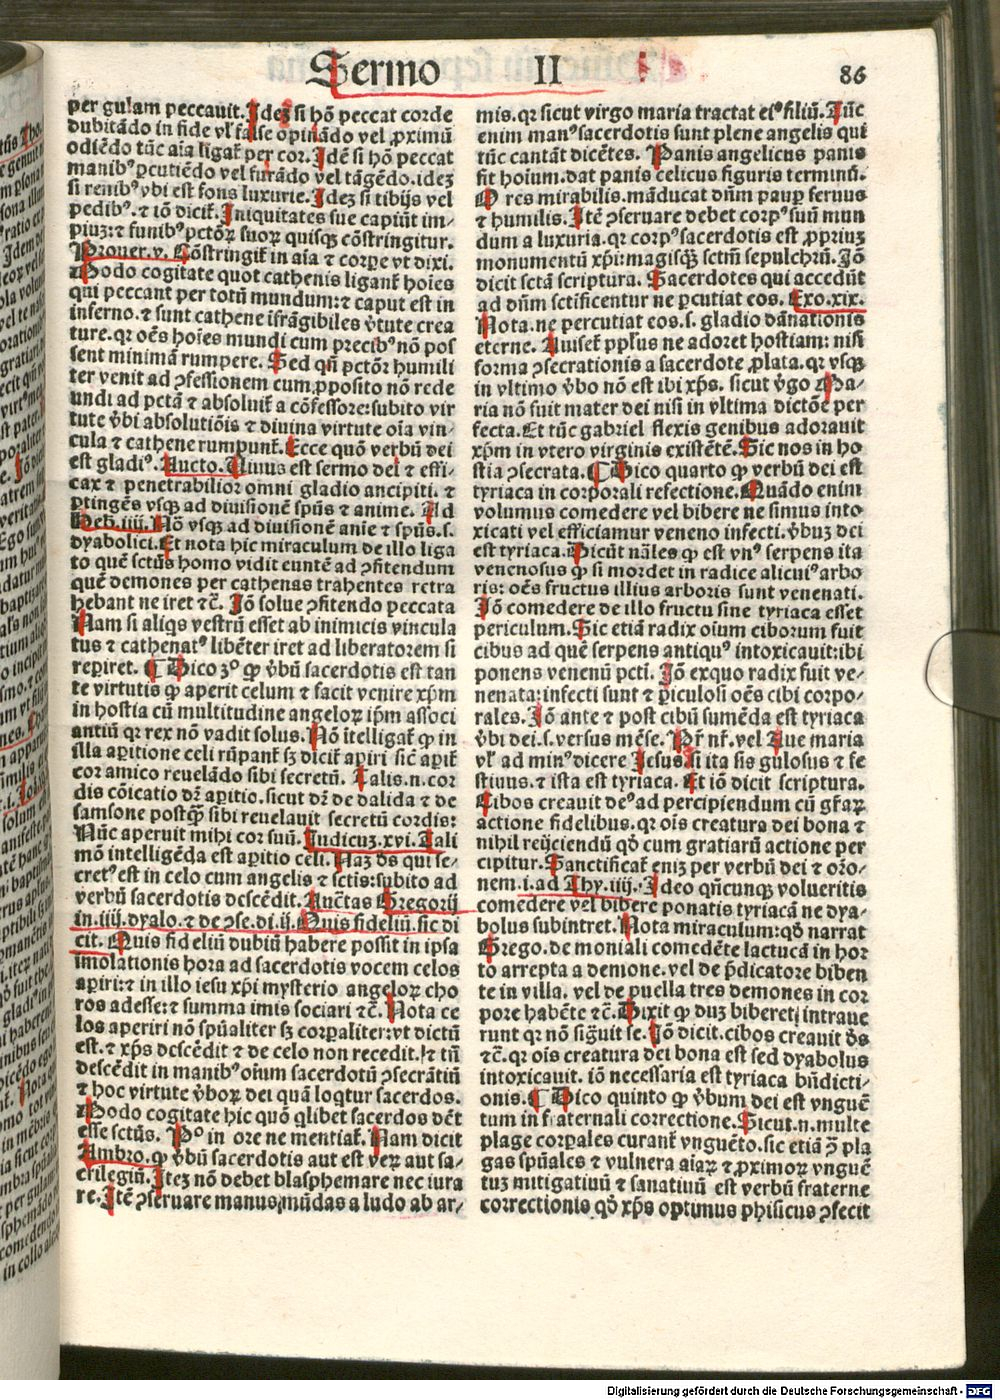 Sermo II 86
per gulam peccauit. Idez si hō peccat corde
dubitādo in fide vl̕ false opinādo vel ꝓximū
odiēdo tūc aīa ligat̄ per cor. Idē si hō peccat
manibꝰ ꝑcutiēdo vel furādo vel tāgēdo. idez
si renibꝰ vbi est fons luxurie. Idez si tibijs vel
pedibꝰ. ⁊ iō dicit̄. Iniquitates sue capiūt im-
piuz: ⁊ funibꝰ pctōꝝ suoꝝ quisqꝫ cōstringitur.
Prouer. v. Cōstringit̄ in aīa ⁊ corꝑe vt dixi.
Modo cogitate quot cathenis ligant̄ hoīes
qui peccant per totū mundum: ⁊ caput est in
inferno. ⁊ sunt cathene īfrāgibiles ꝟtute crea
ture. qr oēs hoīes mundi cum precibꝰ nō pos
sent minimā rumpere. Sed qn̄ pctōr humili
ter venit ad ꝯfessionem cum ꝓposito nō rede
undi ad pctā ⁊ absoluit̄ a cōfessore: subito vir
tute ꝟbi absolutiōis ⁊ diuina virtute oīa vin-
cula ⁊ cathene rumpunt̄. Ecce quō verbū dei
est gladiꝰ. Aucto. Viuus est sermo dei ⁊ effi-
cax ⁊ penetrabilior omni gladio ancipiti. ⁊
ꝑtingēs vsqꝫ ad diuisionē spūs ⁊ anime. Ad
Heb. iiii. Nō vsqꝫ ad diuisionē anie ⁊ spūs. s.
dyabolici. Et nota hic miraculum de illo liga
to quē sctūs homo vidit euntē ad ꝯfitendum
quē demones per cathenas trahentes retra
hebant ne iret ⁊c̄. Iō solue ꝯfitendo peccata
Nam si aliqs vestrū esset ab inimicis vincula
tus ⁊ cathenatꝰ libēter iret ad liberatorem si
reꝑiret. ¶ Dico 3º ꝙ ꝟbū sacerdotis est tan
te virtutis ꝙ aperit celum ⁊ facit venire xp̄m
in hostia cū multitudine angeloꝝ ip̄m associ
antiū qr rex nō vadit solus. Nō ītelligat̄ ꝙ in
illa aꝑitione celi rūpant̄ sꝫ dicit̄ aꝑiri sic̄ aꝑit̄
cor amico reuelādo sibi secretū. Talis. n. cor
dis cōicatio dr̄ aꝑitio. sicut dr̄ de dalida ⁊ de
samsone postqꝫ sibi reuelauit secretū cordis:
Nūc aperuit mihi cor suū. Iudicuz. xvi. Tali
mō intelligēda est aꝑitio celi. Naz ds̄ qui se-
cretꝰ est in celo cum angelis ⁊ sctīs: subito ad
verbū sacerdotis descēdit. Auctas Gregorij
in. iiij. dyalo. ⁊ de ꝯse. di. ij. Quis fideliū. sic di
cit. Quis fideliū dubiū habere possit in ipsa
imolationis hora ad sacerdotis vocem celos
aꝑiri: ⁊ in illo iesu xp̄i mysterio angeloꝝ cho
ros adesse: ⁊ summa imis sociari ⁊c̄. Nota ce
los aperiri nō spūaliter sꝫ corꝑaliter: vt dictū
est. ⁊ xp̄s descēdit ⁊ de celo non recedit. ⁊ tn̄
descēdit in manibꝰ oīum sacerdotū ꝯsecrātiū
⁊ hoc virtute ꝟboꝝ dei quā loqtur sacerdos.
Modo cogitate hic quō qlibet sacerdos dēt
esse sctūs. Pº in ore ne mentiat̄. Nam dicit
Ambro. ꝙ ꝟbū sacerdotis aut est veꝝ aut sa-
crilegiū. Itez nō debet blasphemare nec iura
re. Itē ꝯseruare manus mūdas a ludo ab ar-
mis. qr sicut virgo maria tractat eiꝰ filiū. Tūc
enim manꝰ sacerdotis sunt plene angelis qui
tūc cantāt dicētes. Panis angelicus panis
fit hoīum. dat panis celicus figuris terminū.
O res mirabilis. māducat dn̄m paup̱ seruus
⁊ humilis. Itē ꝯseruare debet corpꝰ suū mun
dum a luxuria. qr corpꝰ sacerdotis est ꝓpriuz
monumentū xp̄i: magisqꝫ sctm̄ sepulchrū. Iō
dicit sctā scriptura. Sacerdotes qui accedūt
ad dn̄m sctificentur ne ꝑcutiat eos. Exo. xix.
Nota. ne percutiat eos. s. gladio dānationis
eterne. Auiset̄ pp̄lus ne adoret hostiam: nisi
forma ꝯsecrationis a sacerdote ꝓlata. qr vsqꝫ
in vltimo ꝟbo nō est ibi xp̄s. sicut ꝟgo Ma-
ria nō fuit mater dei nisi in vltima dictōe per
fecta. Et tūc gabriel flexis genibus adorauit
xp̄m in vtero virginis existētē. Sic nos in ho
stia ꝯsecrata. ¶ Dico quarto ꝙ verbū dei est
tyriaca in corporali refectione. Quādo enim
volumus comedere vel bibere ne simus into
xicati vel efficiamur veneno infecti. ꝟbuz dei
est tyriaca. Dicūt nāles ꝙ est vnꝰ serpens ita
venenosus ꝙ si mordet in radice alicuiꝰ arbo
ris: oēs fructus illius arboris sunt venenati.
Iō comedere de illo fructu sine tyriaca esset
periculum. Sic etiā radix oīum ciborum fuit
cibus ad quē serpens antiquꝰ intoxicauit: ibi
ponens venenū pcti. Iō exquo radix fuit ve-
nenata: infecti sunt ⁊ ꝑiculosi oēs cibi corpo-
rales. Iō ante ⁊ post cibū sumēda est tyriaca
ꝟbi dei. s. versus mēse. Pr̄ nr̄. vel Aue maria
vl̕ ad minꝰ dicere Iesus. si ita sis gulosus ⁊ fe
stiuus. ⁊ ista est tyriaca. Et iō dicit scriptura.
Cibos creauit deꝰ ad percipiendum cū gr̄aꝝ
actione fidelibus. qr oīs creatura dei bona ⁊
nihil reijciendū qd̄ cum gratiarū actione per
cipitur. Sanctificat̄ eniz per verbū dei ⁊ orō-
nem. i. ad Thy. iiij. Ideo qn̄cunqꝫ volueritis
comedere vel bibere ponatis tyriacā ne dya-
bolus subintret. Nota miraculum: qd̄ narrat
Grego. de moniali comedēte lactucā in hor
to arrepta a demone. vel de p̄dicatore biben
te in villa. vel de puella tres demones in cor
pore habēte ⁊c̄. Dixit ꝙ duz biberet intraue
runt qr nō sig̅uit se. Iō dicit. cibos creauit ds̄
⁊c̄. qr oīs creatura dei bona est sed dyabolus
intoxicauit. iō necessaria est tyriaca bn̄dicti-
onis. ¶ Dico quinto ꝙ ꝟbum dei est vnguē
tum in fraternali correctione. Sicut. n. multe
plage corꝑales curant̄ vnguēto. sic etiā ꝯ pla
gas spūales ⁊ vulnera aīaꝝ ⁊ ꝓximoꝝ vnguē
tuz mitigatiuū ⁊ sanatiuū est verbū fraterne
correctionis qd̄ xp̄s optimus phisicus ꝯfecit
Digitalisierung gefördert durch die Deutsche Forschungsgemeinschaft - DFG